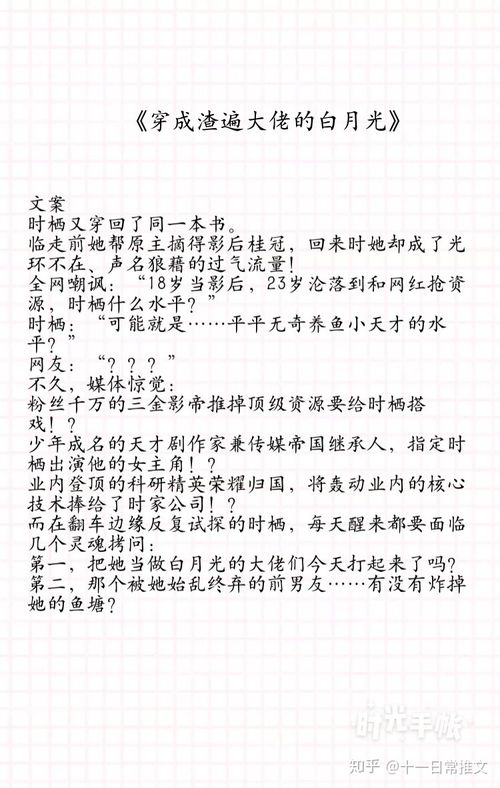 《穿成渣遍大佬的白月光》
文案
时栖又穿回了同一本书。
临走前她帮原主摘得影后桂冠，回来时她却成了光
环不在、声名狼藉的过气流量！
全网嘲讽：“18岁当影后，23岁沦落到和网红抢资
源，时栖什么水平？”
时栖：“可能就是……平平无奇养鱼小天才的水
平？”
网友：“？？？”
不久，媒体惊觉：
粉丝千万的三金影帝推掉顶级资源要给时栖搭
戏！？
少年成名的天才剧作家兼传媒帝国继承人，指定时
栖出演他的女主角！？
业内登顶的科研精英荣耀归国，将轰动业内的核心
技术捧给了时家公司！？
而在翻车边缘反复试探的时栖，每天醒来都要面临
几个灵魂拷问：
第一，把她当做白月光的大佬们今天打起来了吗？
第二，那个被她始乱终弃的前男友……有没有炸掉
她的鱼塘？
时光手帐
知乎 @十一日常推文